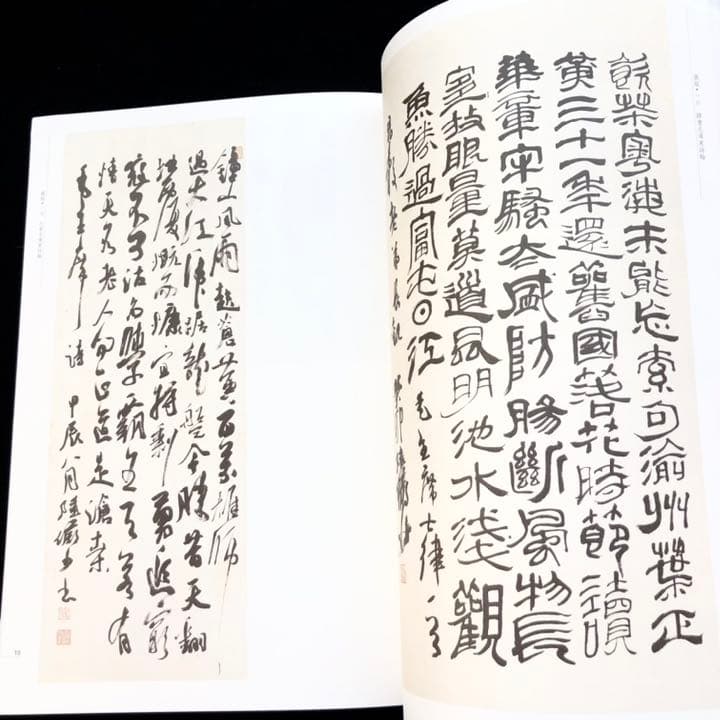 鍾山風雨起蒼黃百萬雄師
過大江虎踞龍盤今勝昔天翻
地覆慨而慷宜將剩勇追窮
寇不可沽名學霸王天若有
情天亦老人間正道是滄桑
毛主席詩 甲辰八月陸儼少書
10
飲茶粵海未能忘索句渝州葉正
黃三十一年還舊國落花時節讀
華章牢騷太盛防腸斷風物長
宜放眼量莫道昆明池水淺觀
魚勝過富春江 毛主席七律一首